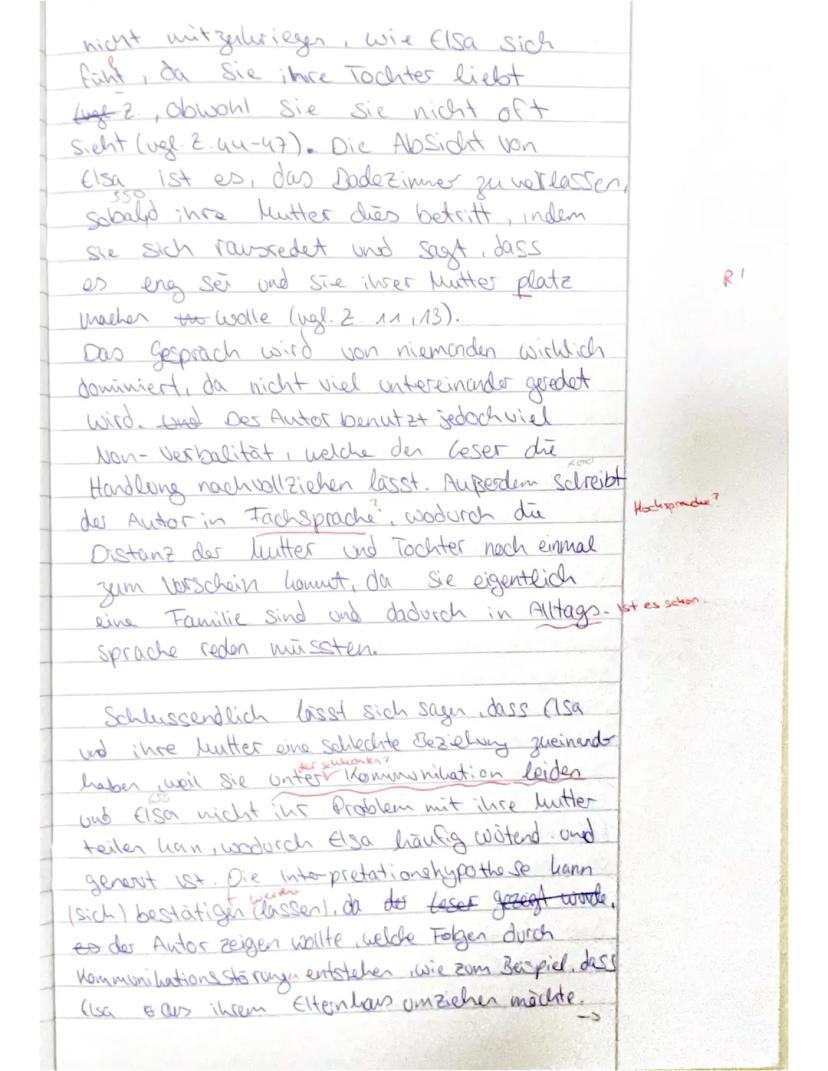 nicht mitzukriegen, wie Elsa sich
fühlt, da sie ihre Tochter liebt
(vgl Z, obwohl sie sie nicht oft
sieht (vgl. Z. 44-47). Die Absicht von
Elsa ist es, das Badezimmer zu verlassen,
550
sobald ihre Mutter dies betritt, indem
sie sich rausredet und sagt, dass
es eng sei und sie ihrer Mutter platz R!
machen wolle (vgl. Z 11,13).
Das Gespräch wird von niemanden wirklich
dominiert, da nicht viel untereinander geredet
wird. Und Der Autor benutzt jedoch viel
Non-Verbalität, welche den Leser die
600
Handlung nachvollziehen lässt. Außerdem schreibt
der Autor in Fachsprache?, wodurch die Hochsprache?
Distanz der Mutter und Tochter noch einmal
zum Vorschein kommt, da sie eigentlich
eine Familie sind und dadurch in Alltags- ist es schon.
sprache reden müssten.
Schlussendlich lässt sich sagen, dass Elsa
und ihre Mutter eine schlechte Beziehung zueinander
der schlechten?
haben, weil sie unter Kommunikation leiden
650
und Elsa nicht ihr Problem mit ihre Mutter
teilen kan, wodurch Elsa häufig wütend und
genervt ist. Die Interpretationshypothese kann
werden
(sich) bestätigt (lassen), da der Leser gezeigt wurde,
es der Autor zeigen wollte, welche Folgen durch
Kommunikationsstörungen entstehen, wie zum Beispiel, dass
Elsa aus ihrem Elternhaus umziehen möchte.
→